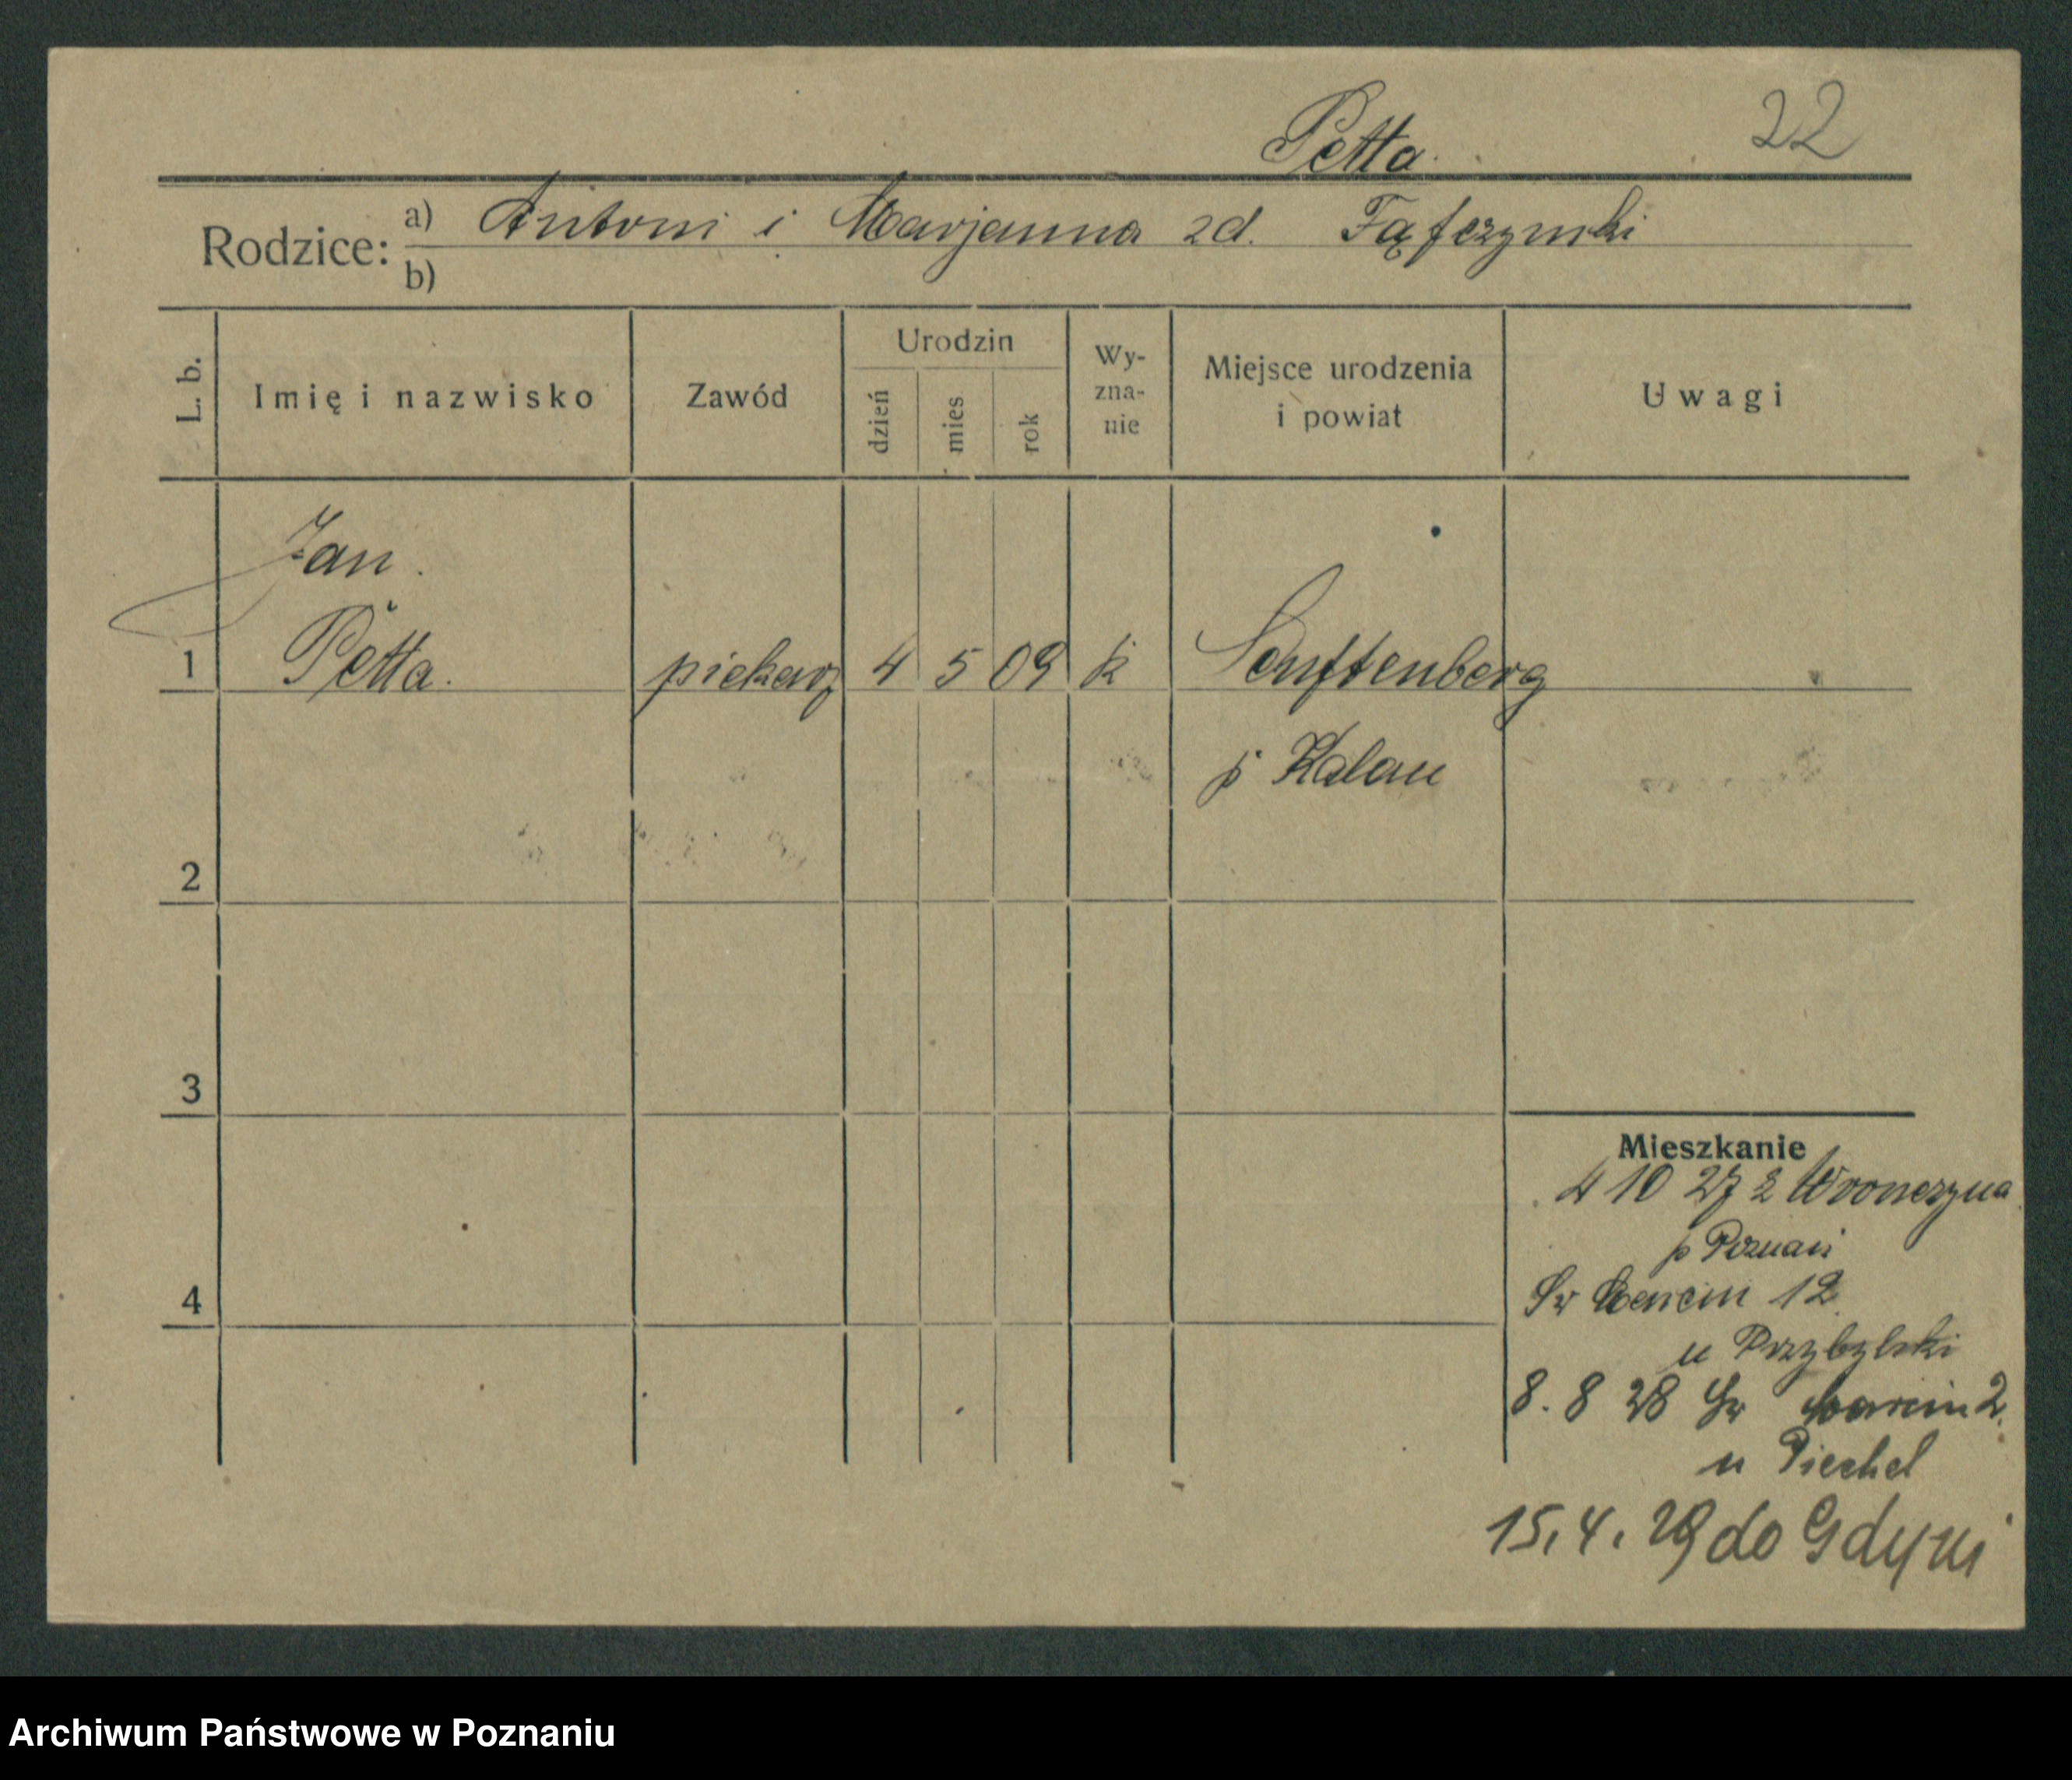 Petta. 22
Rodzice: a) Antoni i Marjanna zd.
b)
L. b. Imię i nazwisko Zawód Urodzin dzień mies rok Wy-zna-nie Miejsce urodzenia i powiat Uwagi
Jan
1 Petta. piekarz 4 5 09 k Senftenberg
p Kalau
2
3
4
Mieszkanie
4 10 27 z Wronczyna
p Poznań
Św Marcin 12
u Przybylski
8. 8 28 Św Marcin 2.
u Piechel
15. 4. 29 do Gdyni
Archiwum Państwowe w Poznaniu